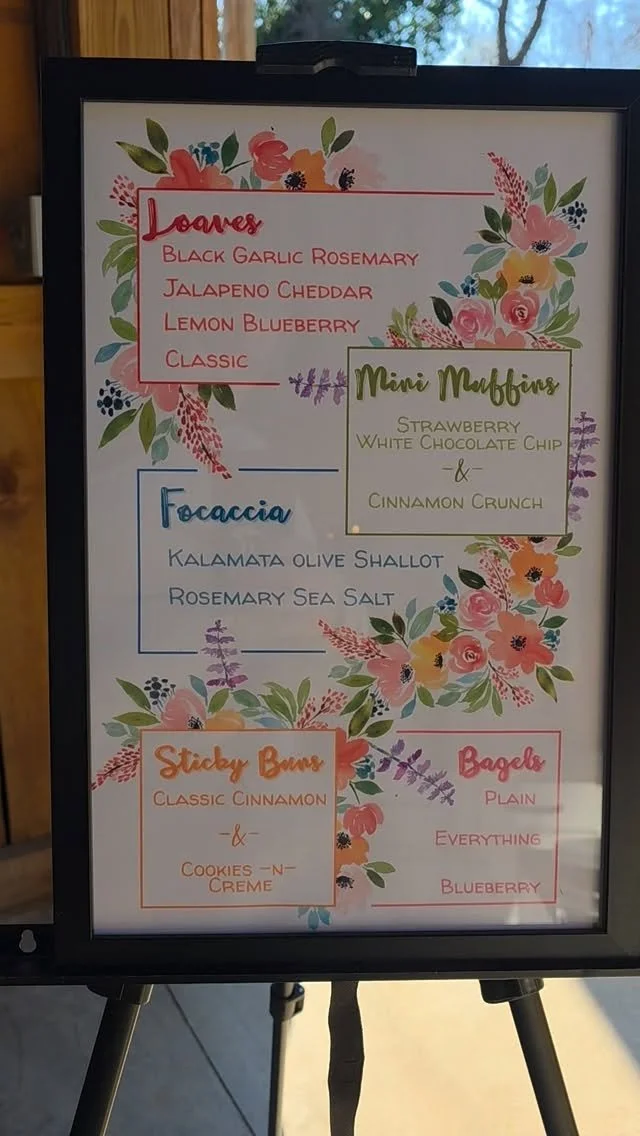 Loaves
Black Garlic Rosemary
Jalapeno Cheddar
Lemon Blueberry
Classic
Mini Muffins
Strawberry
White Chocolate Chip
-&-
Cinnamon Crunch
Focaccia
Kalamata olive Shallot
Rosemary Sea Salt
Sticky Buns
Classic Cinnamon
-&-
Cookies -n-
Creme
Bagels
Plain
Everything
Blueberry